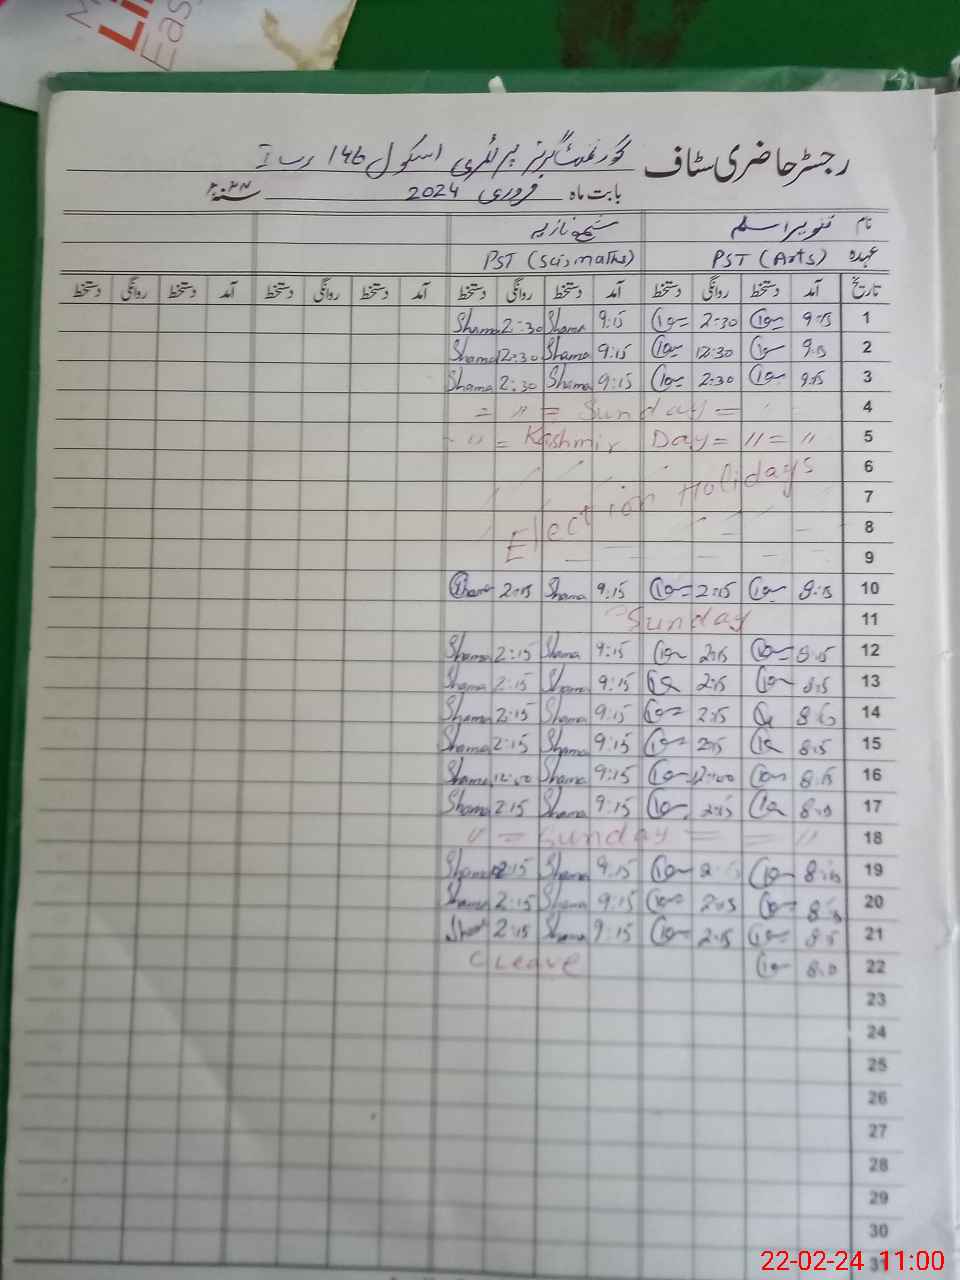 رجسٹر حاضری سٹاف گورنمنٹ گرلز پرائمری اسکول 146 رب I
بابت ماہ فروری 2024 سنہ
نام تنویر اسلم شمع نازیہ
عہدہ PST (Arts) PST (Sci, maths)
تاریخ آمد دستخط روانگی دستخط آمد دستخط روانگی دستخط آمد دستخط روانگی دستخط آمد دستخط روانگی دستخط
1 9:15 2:30 9:15 Shama 2:30 Shama
2 9:15 12:30 9:15 Shama 12:30 Shama
3 9:15 2:30 9:15 Shama 2:30 Shama
4 = " = Sunday =
5 " = Kashmir Day = " = "
6
7 Election Holidays
8
9
10 8:15 2:15 9:15 Shama 2:15 Shama
11 Sunday
12 8:15 2:15 9:15 Shama 2:15 Shama
13 8:15 2:15 9:15 Shama 2:15 Shama
14 2:15 9:15 Shama 2:15 Shama
15 8:15 2:15 9:15 Shama 2:15 Shama
16 8:15 12:00 9:15 Shama 12:00 Shama
17 2:15 9:15 Shama 2:15 Shama
18 " = Sunday = = "
19 9:15 Shama 2:15 Shama
20 2:15 9:15 Shama 2:15 Shama
21 2:15 9:15 Shama 2:15 Shama
22 C Leave
23
24
25
26
27
28
29
30
31
22-02-24 11:00